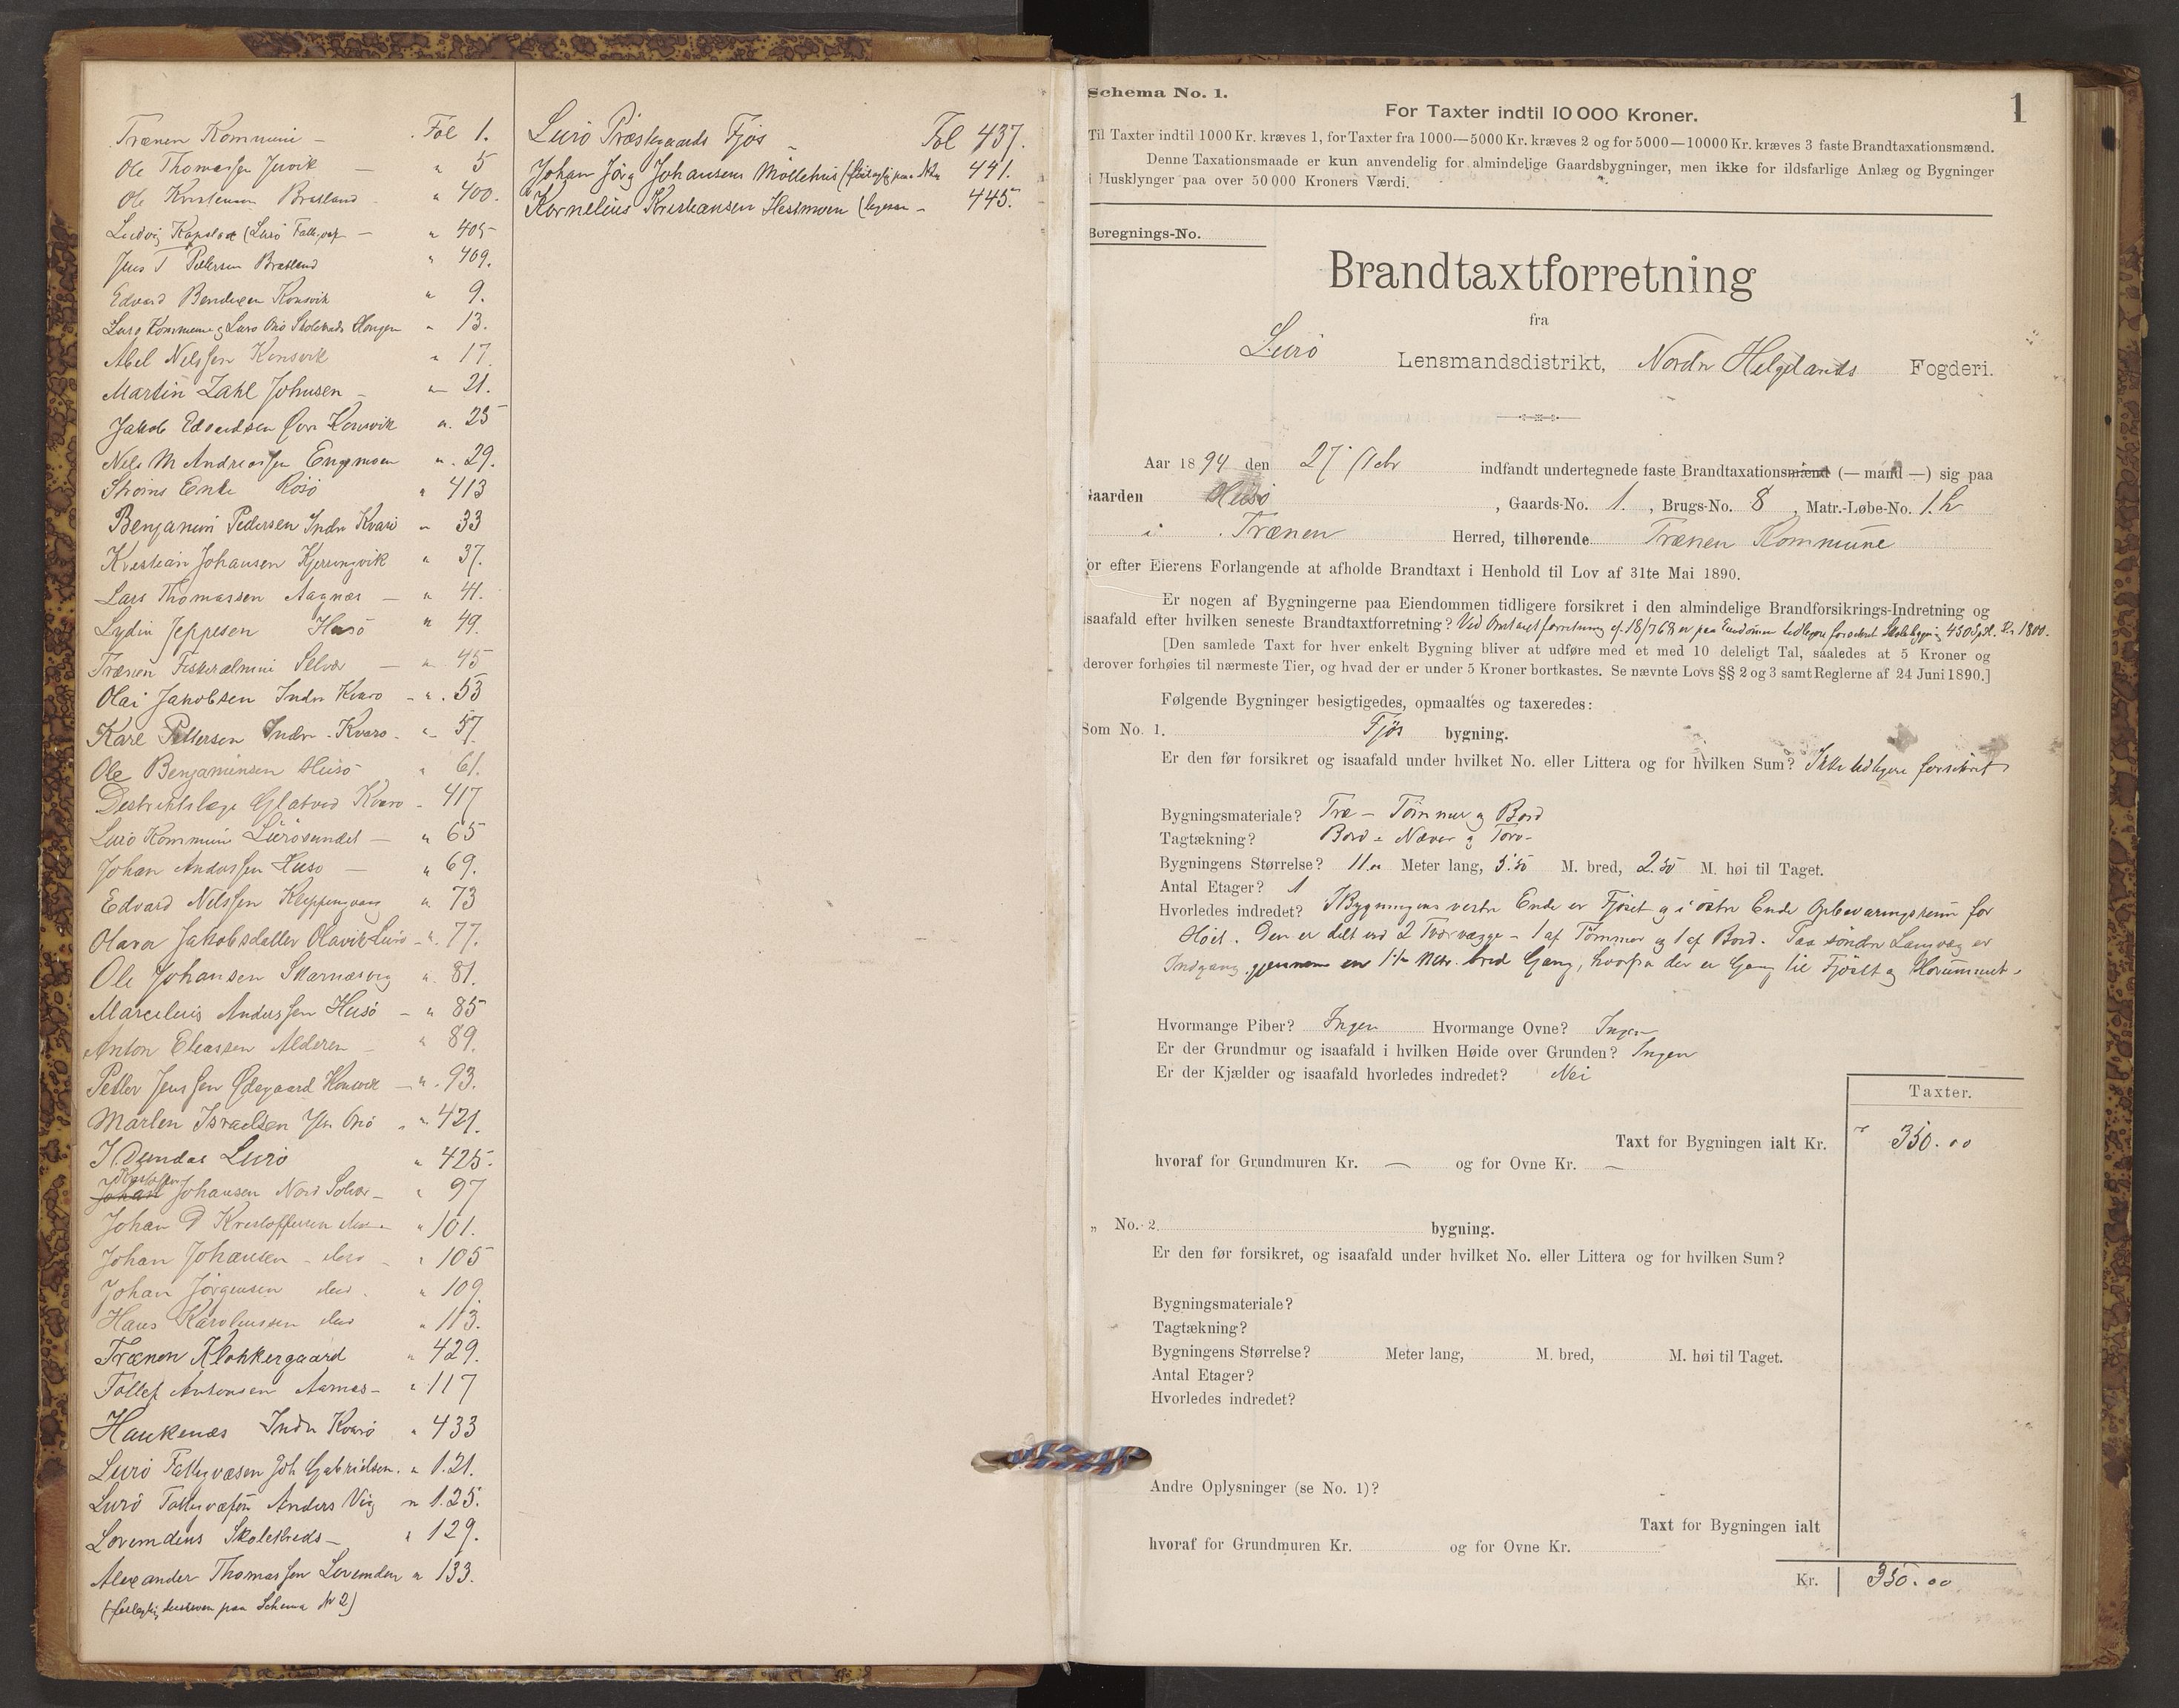 Trænen Kommuni – Fol 1.
Ole Thomassen – " 5
Ole Kristensen Bratland " 400.
Ludvig (Lurö – " 405
Jens T Pettersen Bratland " 409.
Edvard Bendixen Konsvik " 9.
Lurö Kommune og Lurö Onö " 13.
Abel Nelssen Konsvik " 17
Martin Zahl Johnsen – " 21.
Jakob Edvardsen Övre Konsvik " 25
Nils M Andreassen Engmoen " 29.
Enke " 413
Benjamin Pedersen Indre Kvarö " 33
Kristian Johansen Kjerringvik " 37.
Lars Thomassen Aagnæs – " 41.
Lydin Jeppesen Husö " 49.
Trænen Selvær – " 45
Olai Jakobsen Indre Kvarö – " 53
Karl Pettersen Indre Kvarö – " 57
Ole Benjaminsen Husö " 61.
Distriktslæge Kvarö – 417
Lurö Kommuni Lurösundet – " 65
Johan Anderssen Husö – " 69.
Edvard Nilssen " 73
Jakobsdatter Lurö – " 77.
Ole Johansen " 81.
Marcelius Anderssen Husö – " 85
Anton Eleassen Alderen – " 89.
Petter Jenssen Ødegaard Konsvik – " 93.
Marten Israelsen Onö " 421.
Dundas Lurö " 425.
Kristoffer
Johan Johansen Nord Solvær – " 97
Johan D Kristoffersen " 101.
Johan Johansen – " 105
Johan Jörgensen " 109.
Hans " 113.
Trænen Klokkergaard " 429.
Tollef Antonsen – " 117
Haukenæs Indre Kvarö " 433
Lurö Fattigvæsen Joh Gabrielsen " 121.
Lurö Fattigvæsen Anders Vig " 125.
Lovundens – " 129.
Alexander Thomassen Lovunden " 133.
paa Schema № 2)
Lurö Præstegaards Fjös – Fol 437.
Johan Jörg Johansens Möllehus 441.
Kornelius Kristiansen Hestmoen – 445.
1
Schema No. 1.
For Taxter indtil 10 000 Kroner.
Til Taxter indtil 1000 Kr. kræves 1, for Taxter fra 1000—5000 Kr. kræves 2 og for 5000—10000 Kr. kræves 3 faste Brandtaxationsmænd.
Denne Taxationsmaade er kun anvendelig for almindelige Gaardsbygninger, men ikke for ildsfarlige Anlæg og Bygninger
i Husklynger paa over 50 000 Kroners Værdi.
Beregnings-No.
Brandtaxtforretning
fra
Lurö Lensmandsdistrikt, Nordre Helgelands Fogderi.
Aar 1894 den 27 indfandt undertegnede faste Brandtaxationsmænd (— mand —) sig paa
Gaarden Husö, Gaards-No. 1., Brugs-No. 8, Matr.-Løbe-No. 1.h
i Trænen Herred, tilhørende Trænen Kommune
for efter Eierens Forlangende at afholde Brandtaxt i Henhold til Lov af 31te Mai 1890.
Er nogen af Bygningerne paa Eiendommen tidligere forsikret i den almindelige Brandforsikrings-Indretning og
isaafald efter hvilken seneste Brandtaxtforretning? Ved af 18/7 68 er paa Eiendommen tidligere forsikret Skolebygning 450 Spd. Kr 1800.
[Den samlede Taxt for hver enkelt Bygning bliver at udføre med et med 10 deleligt Tal, saaledes at 5 Kroner og
derover forhøies til nærmeste Tier, og hvad der er under 5 Kroner bortkastes. Se nævnte Lovs §§ 2 og 3 samt Reglerne af 24 Juni 1890.]
Følgende Bygninger besigtigedes, opmaaltes og taxeredes:
Som No. 1. Fjös bygning.
Er den før forsikret og isaafald under hvilket No. eller Littera og for hvilken Sum? Ikke tidligere forsikret
Bygningsmateriale? Træ – Tömmer og Bord
Tagtækning? Bord – Næver og Torv –
Bygningens Størrelse? 11.00 Meter lang, 5.50 M. bred, 2.50 M. høi til Taget.
Antal Etager? 1
Hvorledes indredet? I Bygningens vestre Ende er Fjöset og i östre Ende Opbevaringsrum for
Höet. Den er delt ved 2 Tværvægge – 1 af Tömmer og 1 af Bord. Paa söndre Langvæg er
Indgang gjennem en Metr. bred Gang, hvorfra der er Gang til Fjöset og Hörummet.
Hvormange Piber? Ingen Hvormange Ovne? Ingen
Er der Grundmur og isaafald i hvilken Høide over Grunden? Ingen
Er der Kjælder og isaafald hvorledes indredet? Nei
Taxter.
Taxt for Bygningen ialt Kr. 350.00
hvoraf for Grundmuren Kr. — og for Ovne Kr. —
„ No. 2. bygning.
Er den før forsikret, og isaafald under hvilket No. eller Littera og for hvilken Sum?
Bygningsmateriale?
Tagtækning?
Bygningens Størrelse? Meter lang, M. bred, M. høi til Taget.
Antal Etager?
Hvorledes indredet?
Andre Oplysninger (se No. 1)?
Taxt for Bygningen ialt
hvoraf for Grundmuren Kr. og for Ovne Kr.
Kr. 350.00